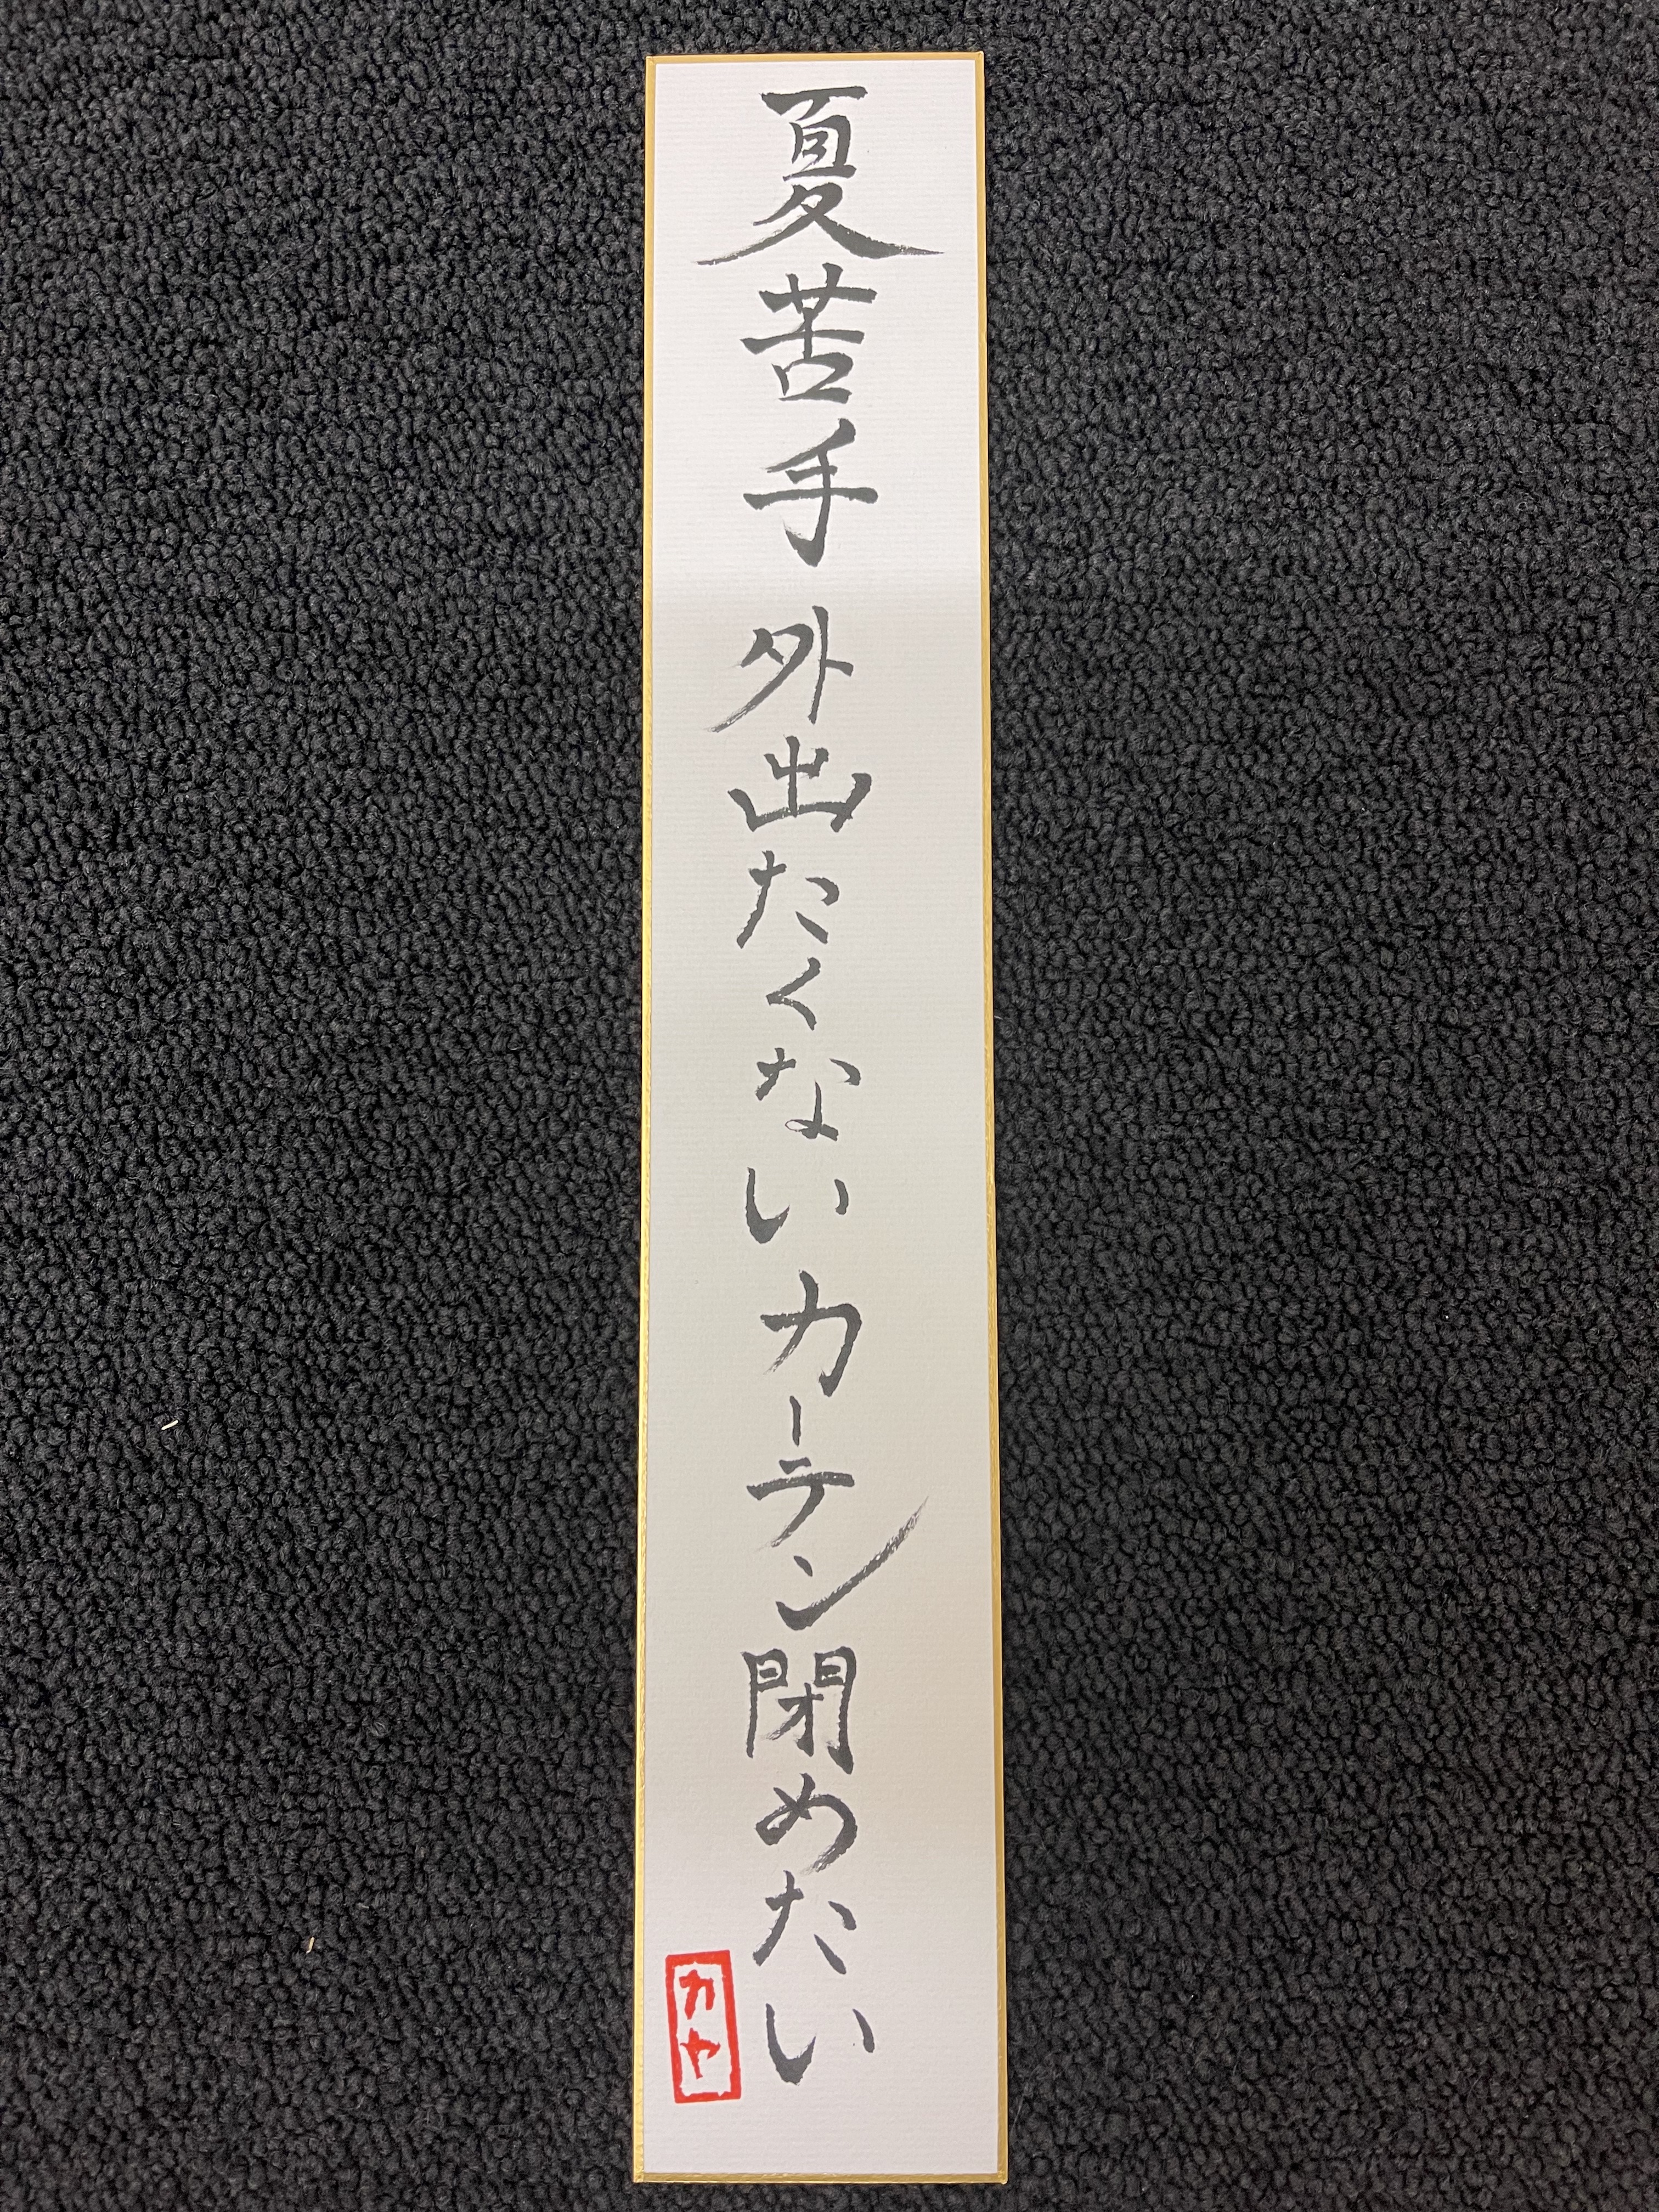 夏苦手 外出たくない カーテン閉めたい
カヤ